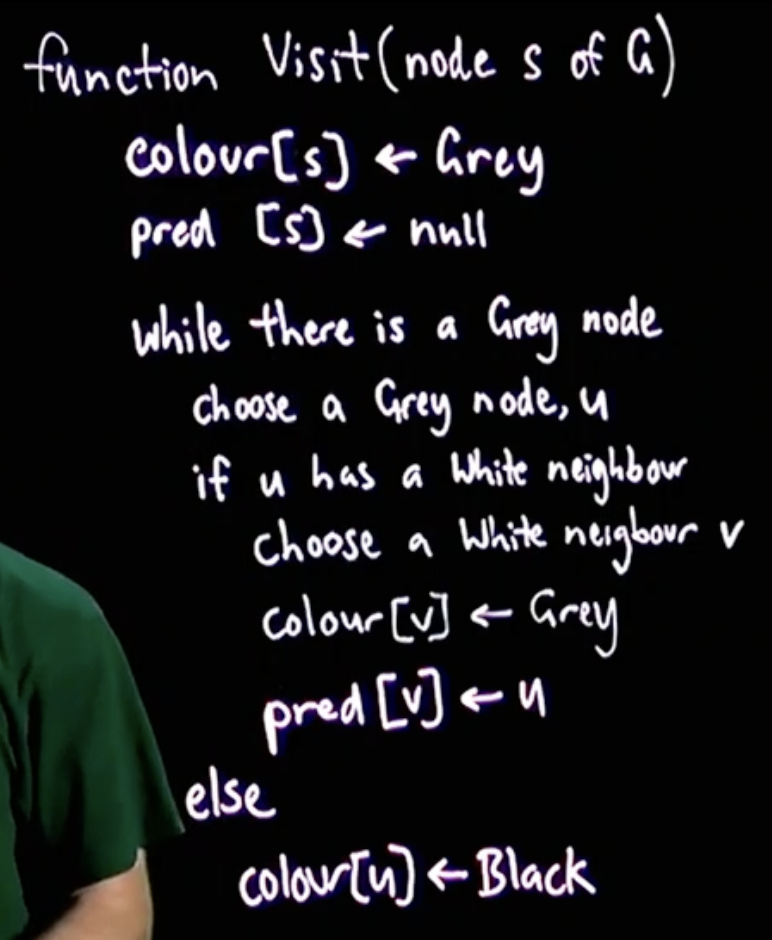 function Visit(node s of G)
colour[s] ← Grey
pred [s] ← null
while there is a Grey node
choose a Grey node, u
if u has a White neighbour
choose a White neigbour v
colour[v] ← Grey
pred[v] ← u
else
colour[u] ← Black